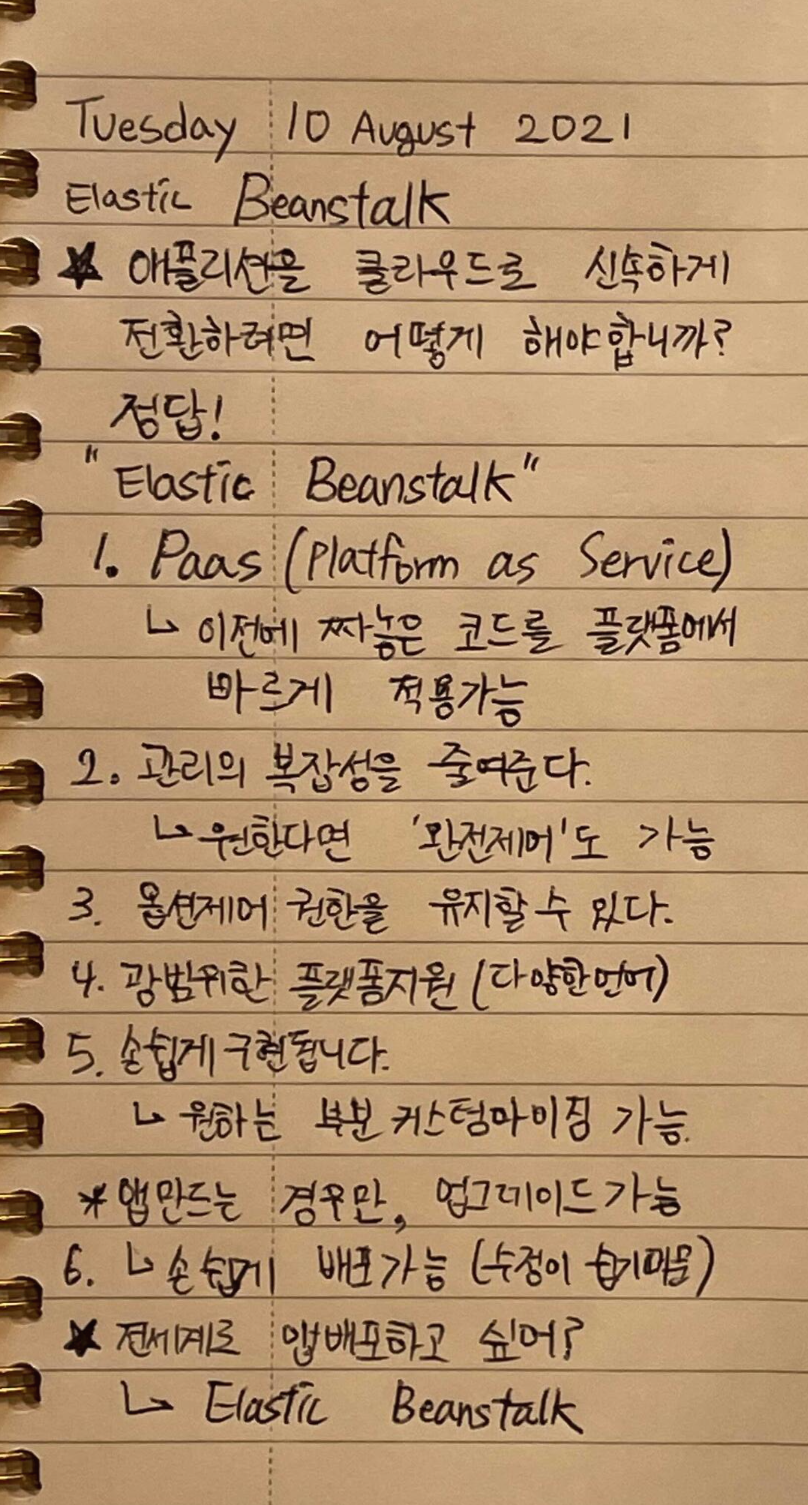 Tuesday 10 August 2021
Elastic Beanstalk
★ 애플리션을 클라우드로 신속하게
전환하려면 어떻게 해야합니까?
정답!
"Elastic Beanstalk"
1. Paas (Platform as Service)
↳ 이전에 짜놓은 코드를 플랫폼에서
바르게 적용가능
2. 관리의 복잡성을 줄여준다.
↳ 원한다면 '완전제어'도 가능
3. 옵션제어 권한을 유지할 수 있다.
4. 광범위한 플랫폼지원 (다양한언어)
5. 손쉽게 구현됩니다.
↳ 원하는 부분 커스텀마이징 가능.
* 앱만드는 경우만, 업그레이드가능
6. ↳ 손쉽게 배포가능 (수정이 쉽기때문)
★ 전세계로 앱배포하고 싶어?
↳ Elastic Beanstalk